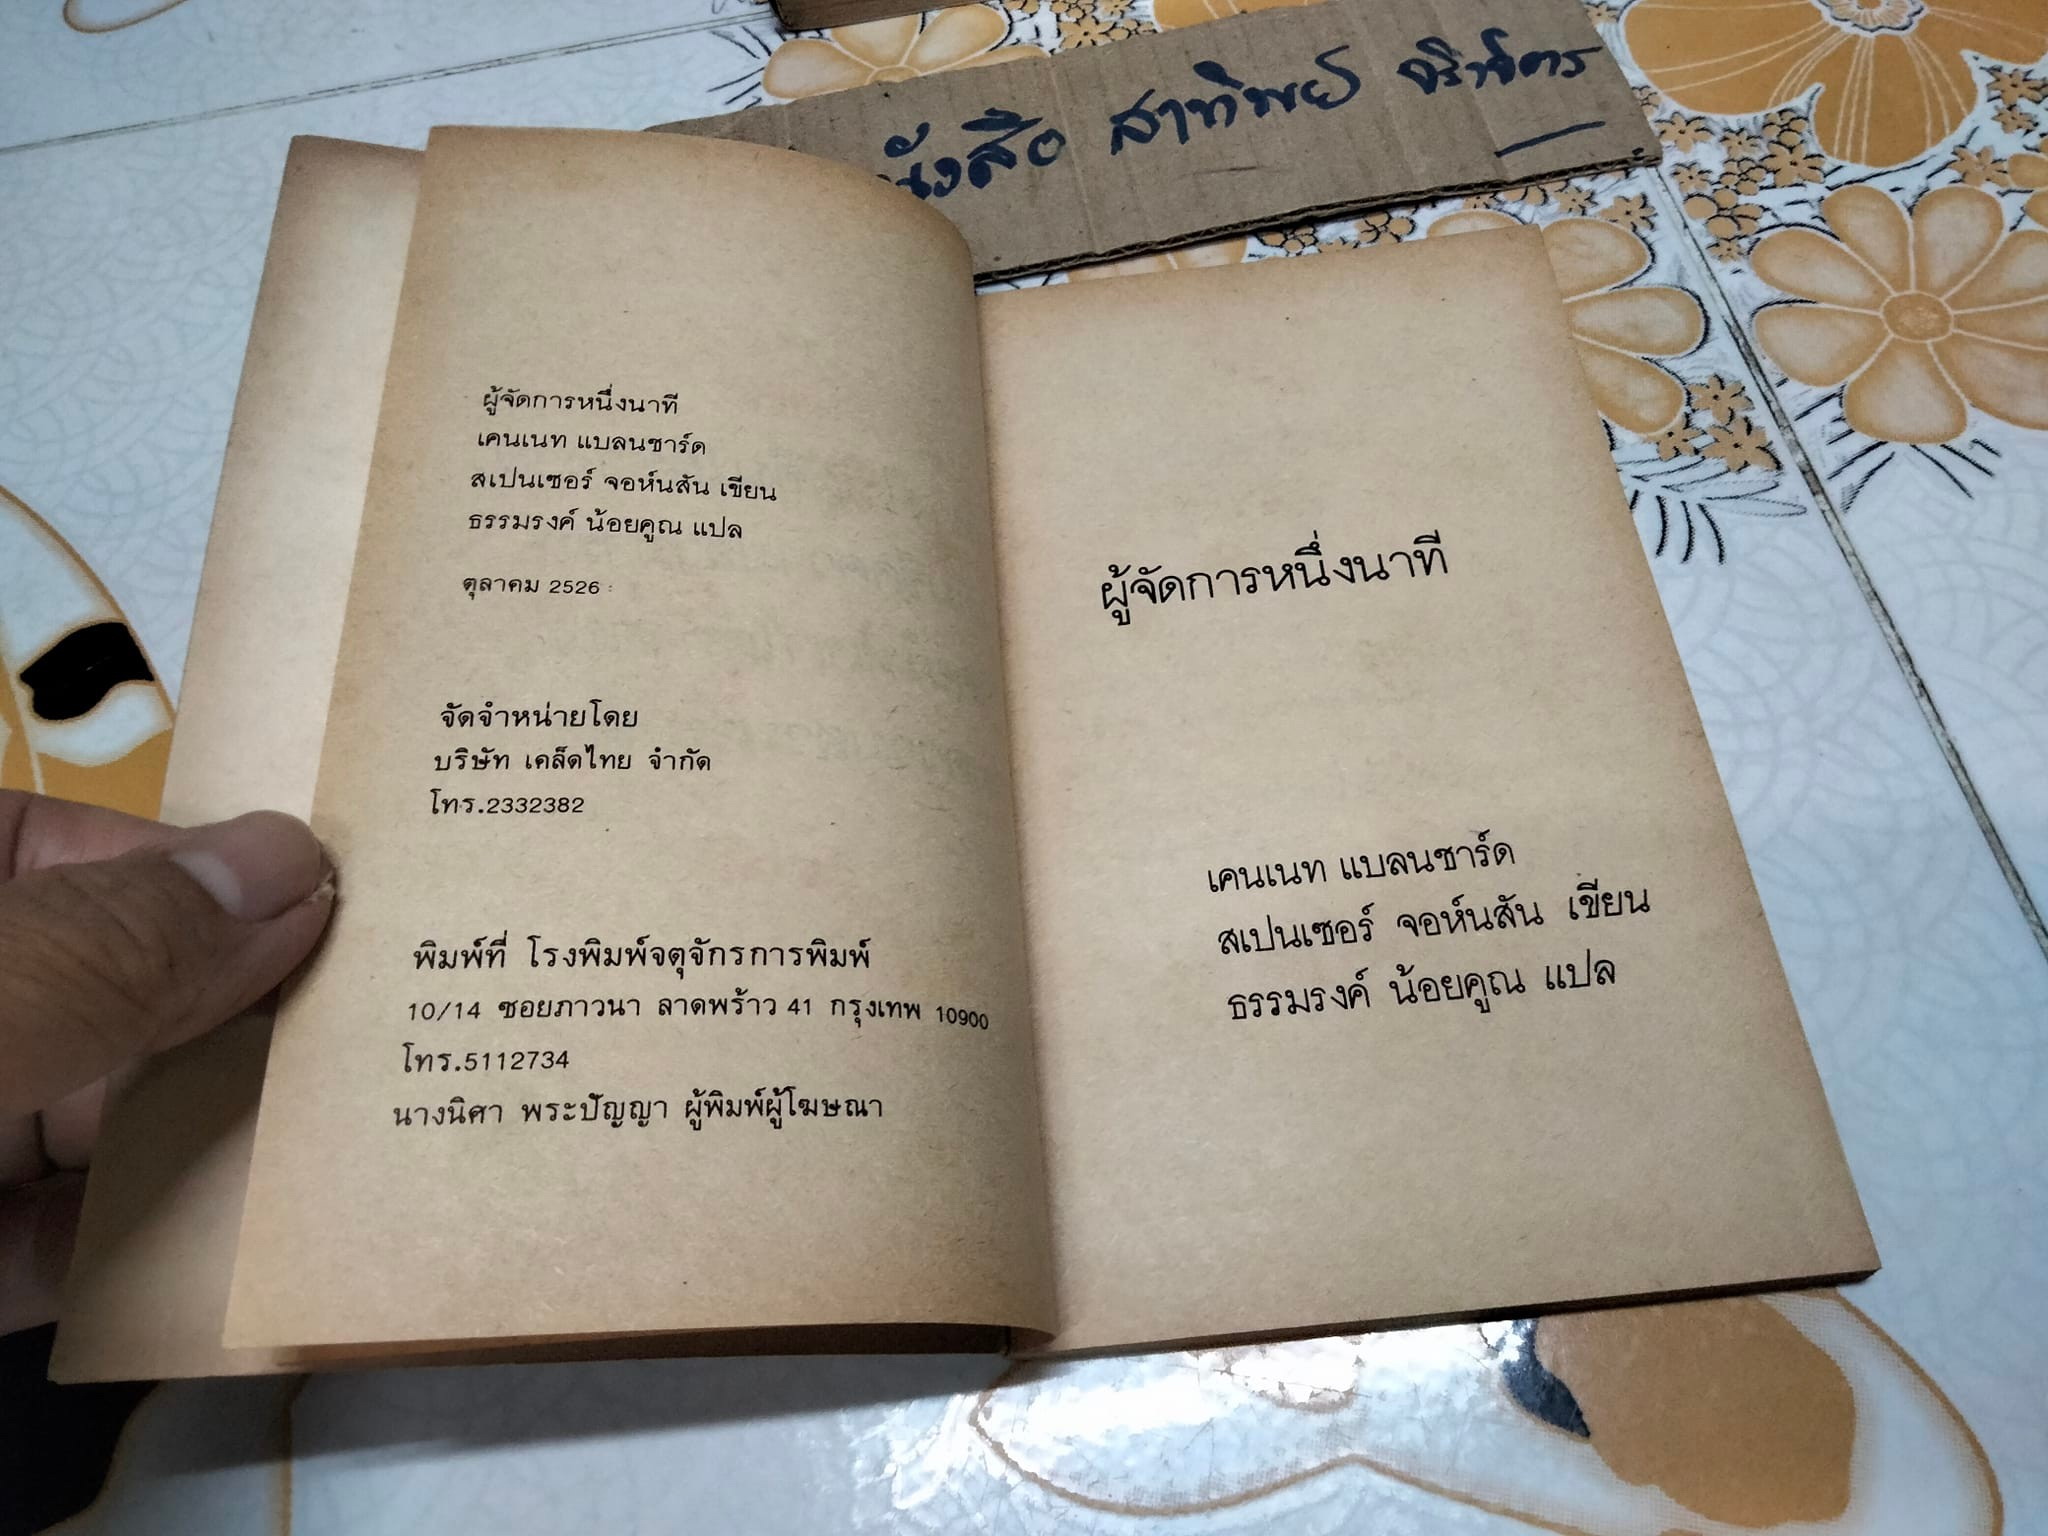 หนังสือ สาทิพย์
ผู้จัดการหนึ่งนาที
เคนเนท แบลนชาร์ด
สเปนเซอร์ จอห์นสัน เขียน
ธรรมรงค์ น้อยคูณ แปล
ตุลาคม 2526
จัดจำหน่ายโดย
บริษัท เคล็ดไทย จำกัด
โทร.2332382
พิมพ์ที่ โรงพิมพ์จตุจักรการพิมพ์
10/14 ซอยภาวนา ลาดพร้าว 41 กรุงเทพ 10900
โทร.5112734
นางนิศา พระปัญญา ผู้พิมพ์ผู้โฆษณา
ผู้จัดการหนึ่งนาที
เคนเนท แบลนชาร์ด
สเปนเซอร์ จอห์นสัน เขียน
ธรรมรงค์ น้อยคูณ แปล